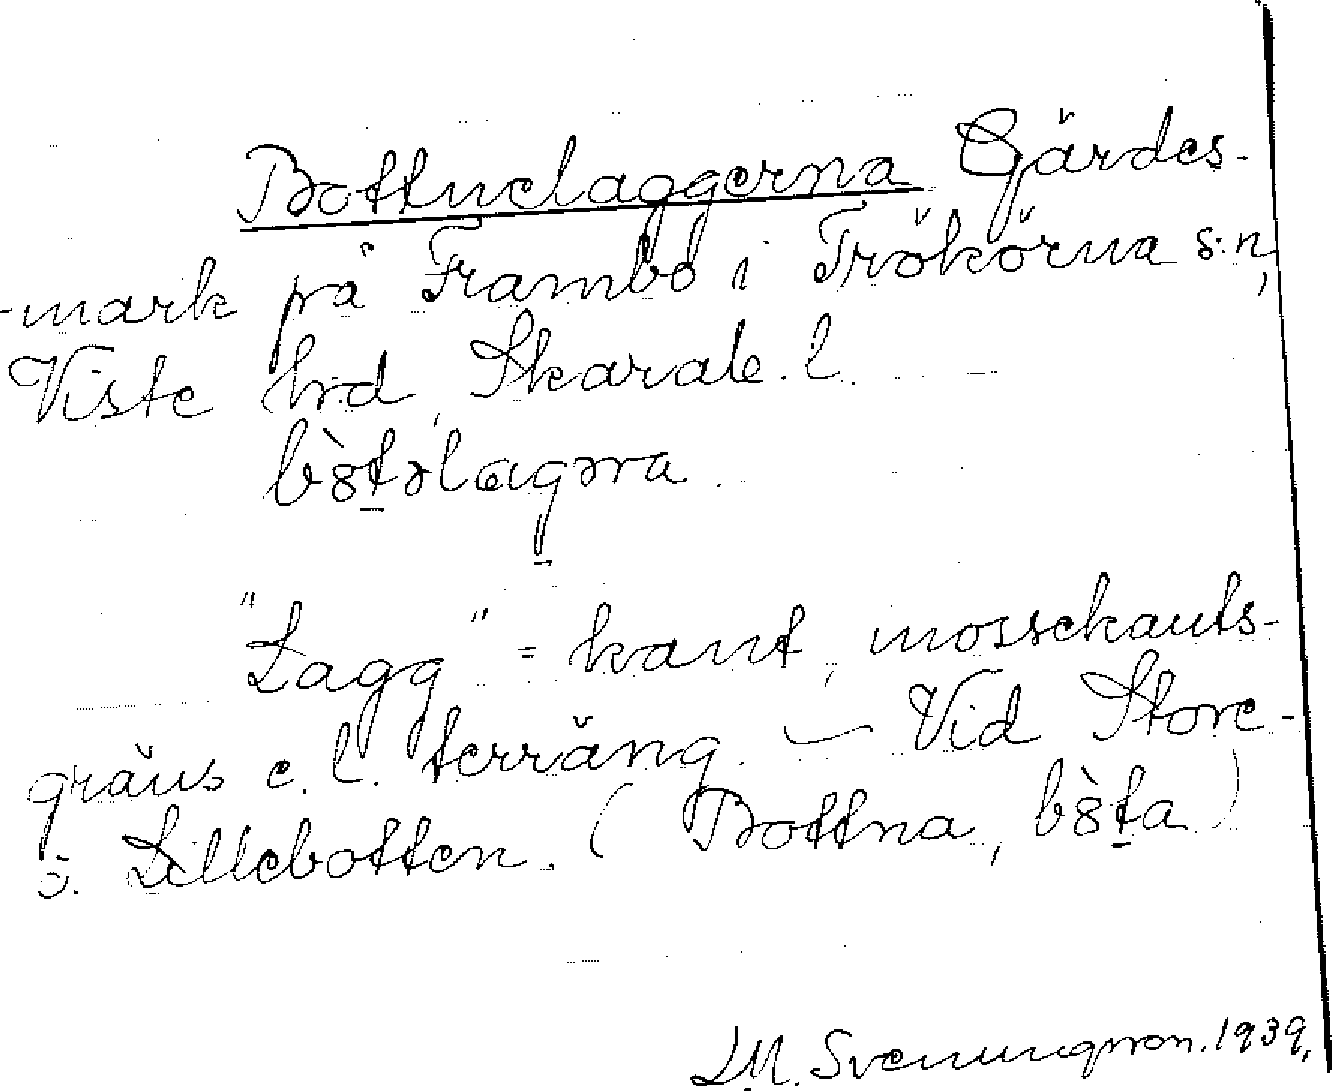 Bottnelaggerna Gärdes-
-mark på Frambo i Trökörna s:n,
Viste hrd, Skarab. l.
bò̤təlagəra.
"Lagg" = kant, mossekants-
gräns e. l. terräng. — Vid Store-
o. Lillebotten. (Bottna, bòta)
Svenungsson. 1939.